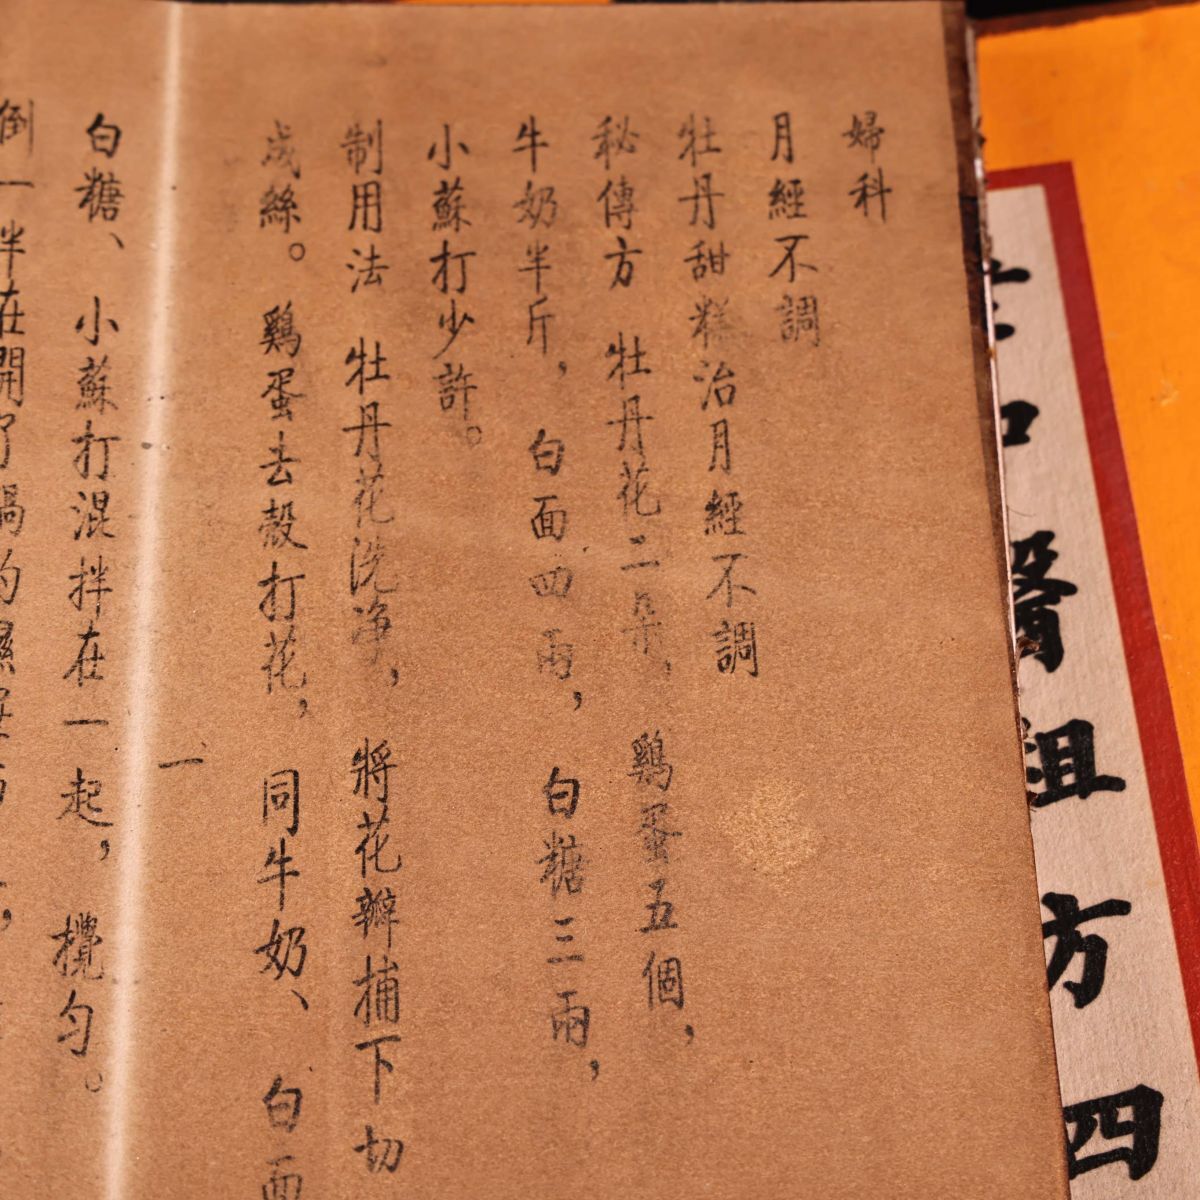 婦科
月經不調
牡丹甜糕治月經不調
秘傳方 牡丹花二朵，鷄蛋五個，
牛奶半斤，白面四兩，白糖三兩，
小蘇打少許。
制用法 牡丹花洗净，將花瓣捕下切
成絲。鷄蛋去殼打花，同牛奶、白面
一
白糖、小蘇打混拌在一起，攪勻。
倒一拌在開了鍋的
醫祖方四